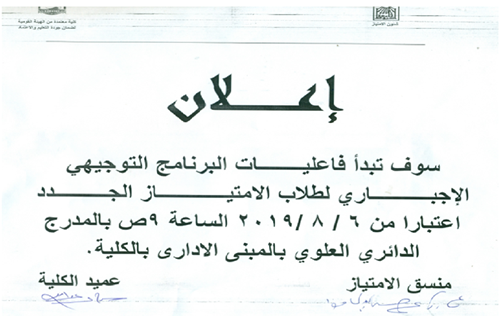 كلية معتمدة من الهيئة القومية
لضمان جودة التعليم والاعتماد
شئون الامتياز
إعلان
سوف تبدأ فاعليات البرنامج التوجيهي
الإجباري لطلاب الامتياز الجدد
اعتبارا من ٦ / ٨ / ٢٠١٩ الساعة ٩ص بالمدرج
الدائري العلوي بالمبنى الادارى بالكلية.
منسق الامتياز
عميد الكلية